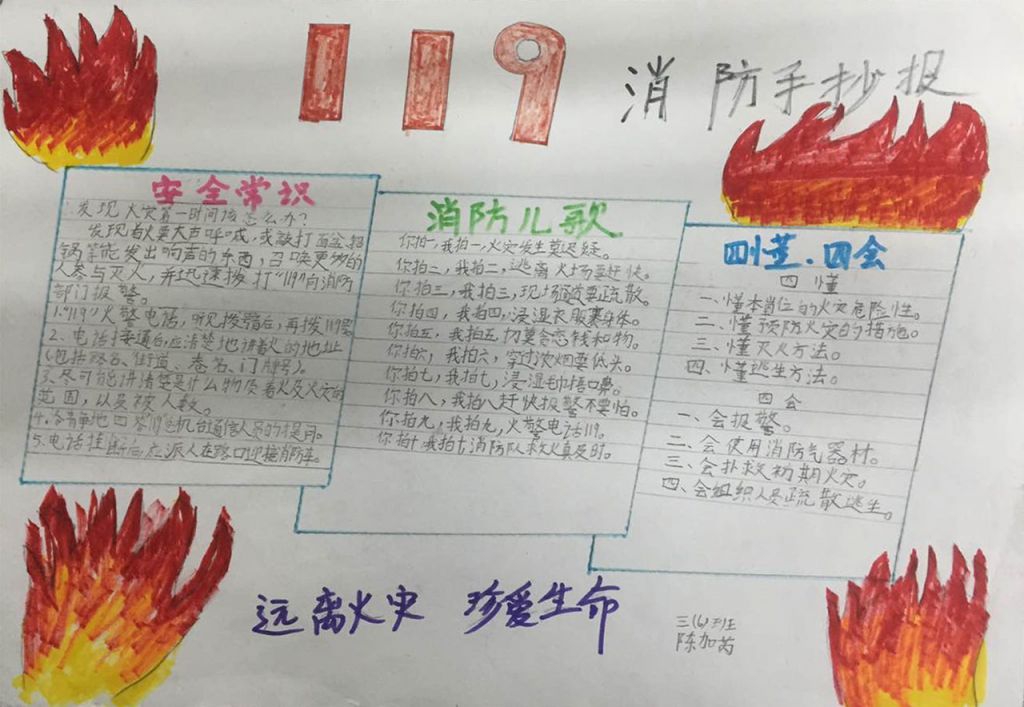 119
消防手抄报
安全常识
发现火灾第一时间该怎么办?
发现着火要大声呼喊,或敲打面盆、
锅等能发出响声的东西,召唤更多的
人参与灭火,并迅速拨打“119”向消防
部门报警。
1.“119”火警电话,听见拨号音后,再拨119号
2、电话接通后,应清楚地讲着火的地址
(包括路名、街道、巷名、门牌号)。
3、尽可能讲清楚是什么物质着火及火灾的
范围,以及被人数。
4、冷静地回答119总机台通信人员的提问。
5.电话挂断后,应派人在路口迎接消防车。
消防儿歌
你拍一,我拍一,火灾发生莫迟疑。
你拍二,我拍二,逃离火场要赶快。
你拍三,我拍三,现场通道要疏散。
你拍四,我拍四,浸湿衣服裹身体。
你拍五,我拍五,切莫贪恋钱和物。
你拍六,我拍六,穿过浓烟要低头。
你拍七,我拍七,浸湿毛巾捂口鼻。
你拍八,我拍八赶快报警不要怕。
你拍九,我拍九,火警电话119。
你拍十,我拍十,消防队救火真及时。
四懂、四会
四懂
一、懂本岗位的火灾危险性。
二、懂预防火灾的措施。
三、懂灭火方法。
四、懂逃生方法。
四会
一、会报警。
二、会使用消防器材。
三、会扑救初期火灾。
四、会组织人员疏散逃生。
远离火灾 珍爱生命
三(6)班
陈加芮